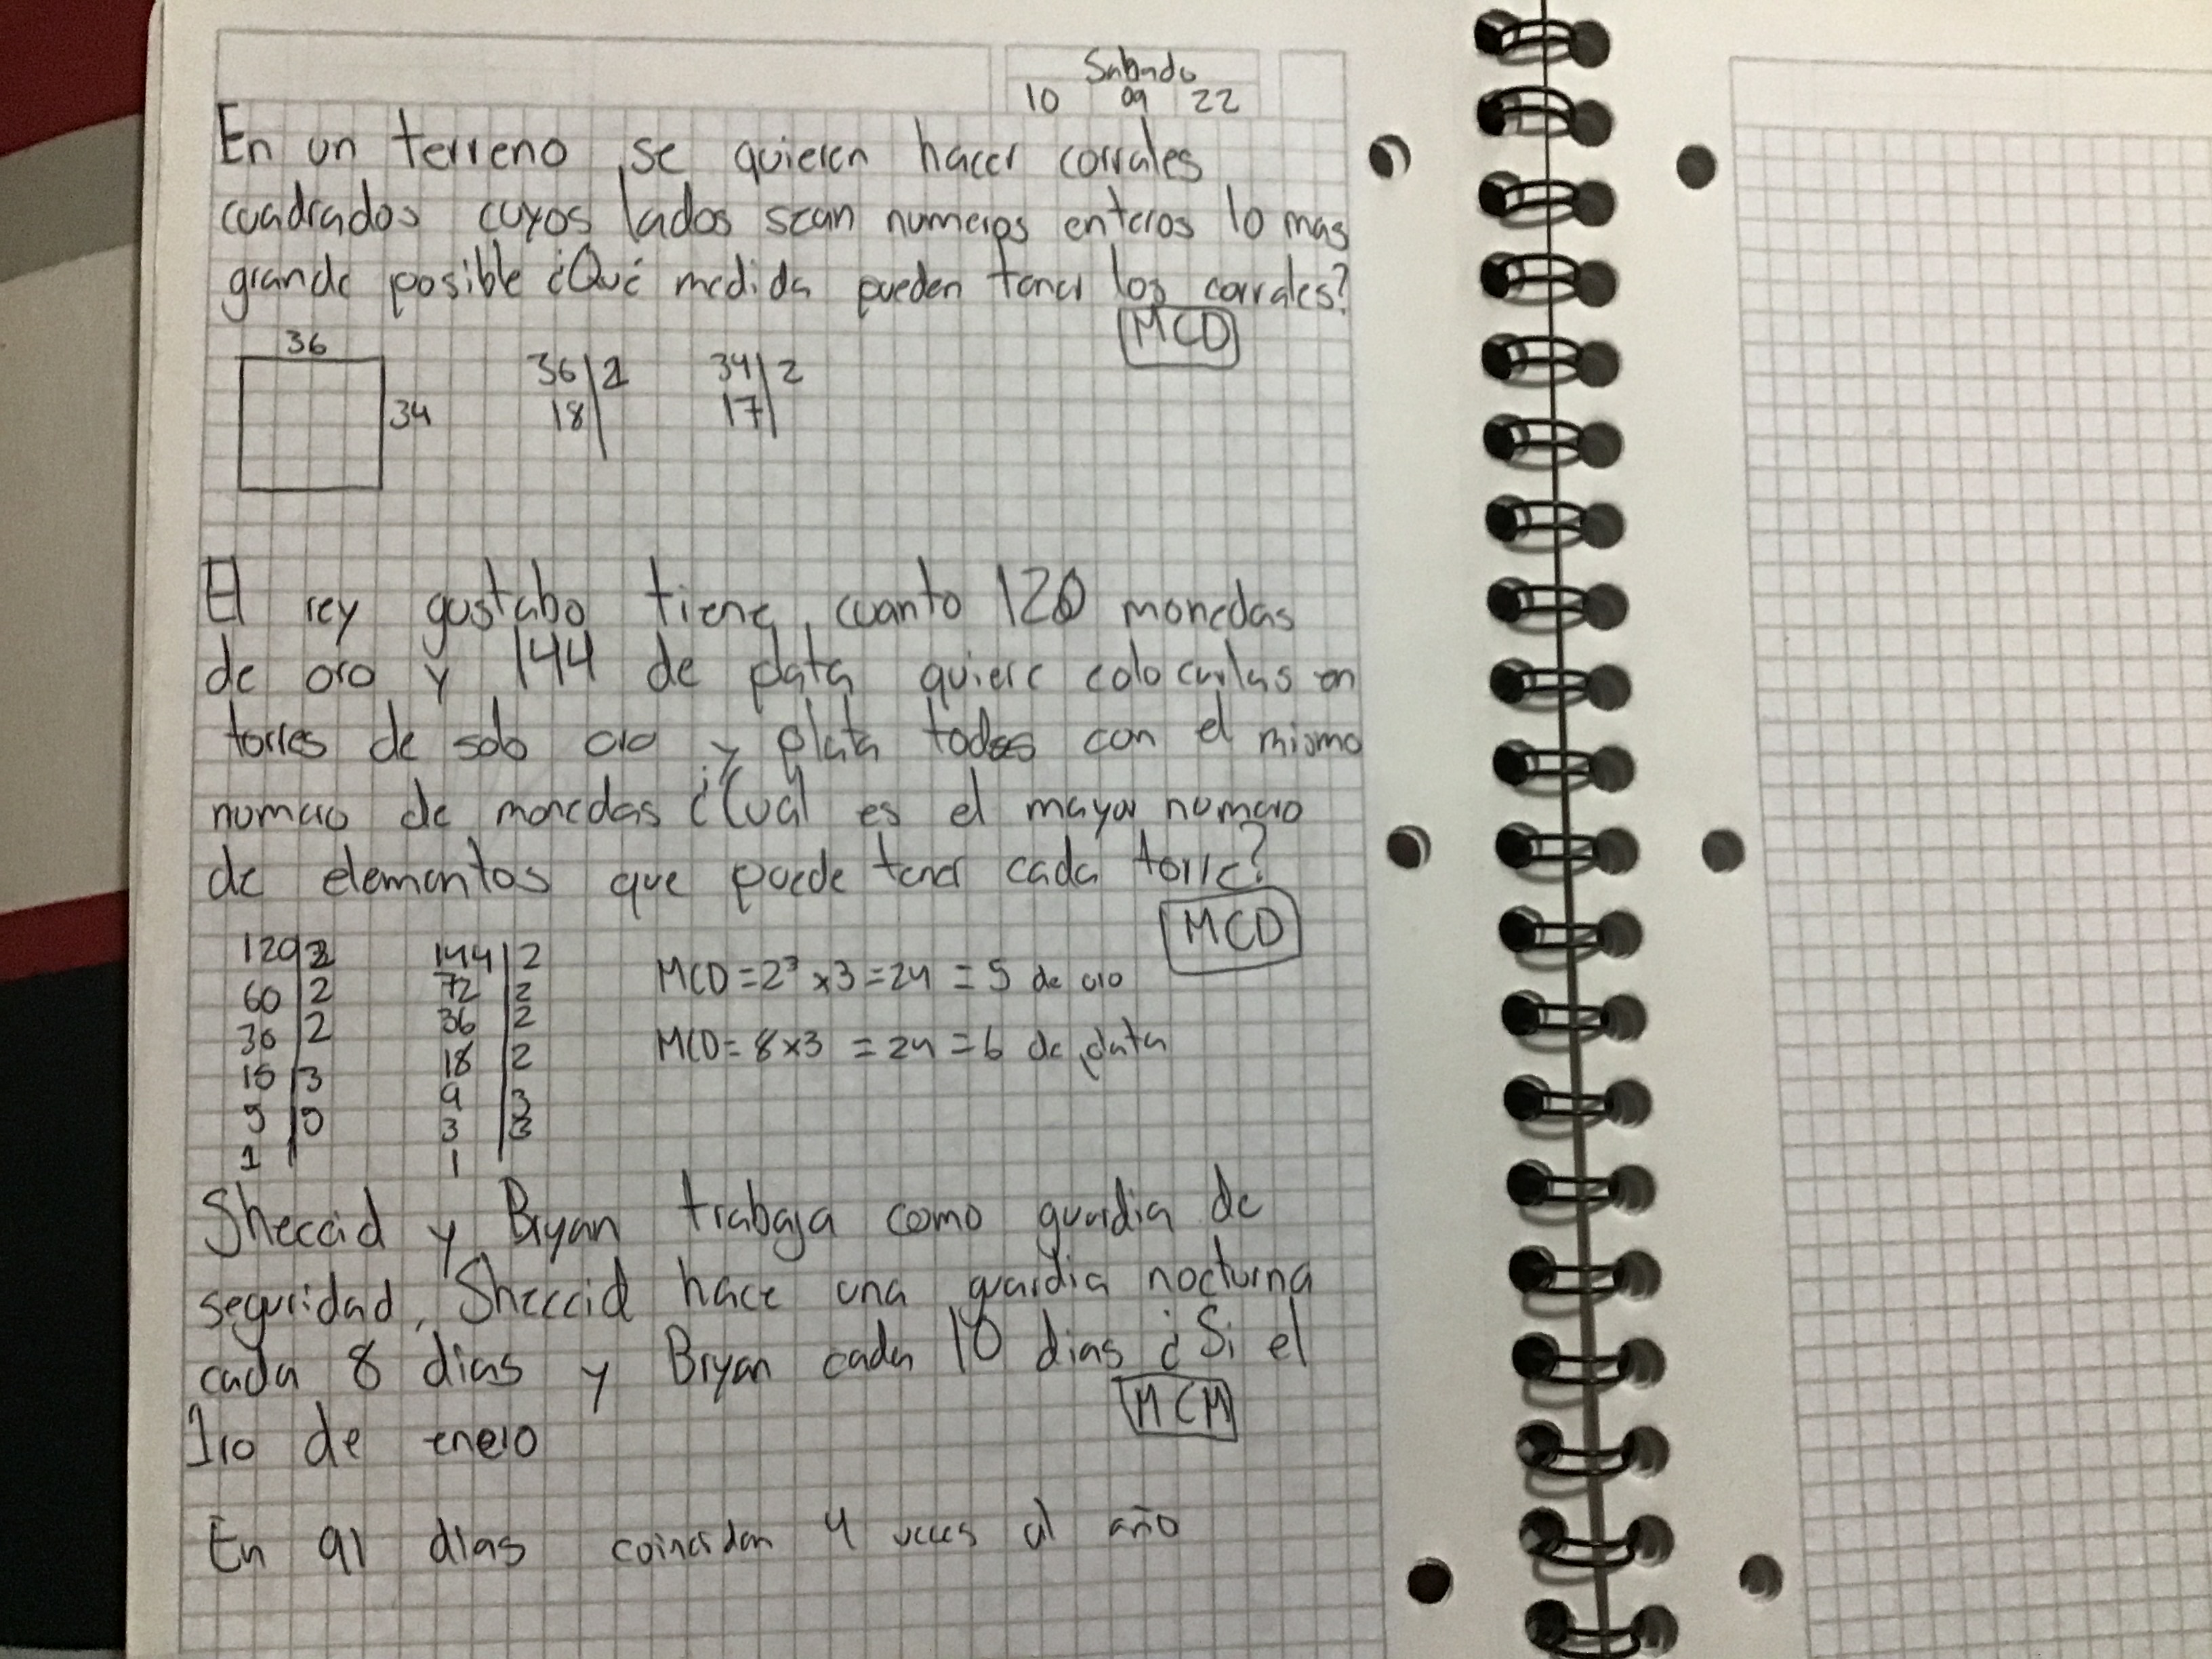 Sabado
10 09 22
En un terreno se quieren hacer corrales
cuadrados cuyos lados sean numeros enteros lo mas
grande posible ¿Qué medida pueden tener los corrales?
MCD
36
36 2 34 2
34 18 17
El rey gustabo tiene cuanto 120 monedas
de oro y 144 de plata quiere colocarlas en
torres de solo oro y plata todas con el mismo
numero de monedas ¿Cuál es el mayor numero
de elementos que puede tener cada torre?
MCD
120 2 144 2 MCD = 2³ x 3 = 24 = 5 de oro
60 2 72 2
30 2 36 2 MCD = 8 x 3 = 24 = 6 de plata
15 3 18 2
5 5 9 3
1 3 3
1
Sheccid y Bryan trabaja como guardia de
seguridad, Sheccid hace una guardia nocturna
cada 8 dias y Bryan cada 10 dias ¿Si el
MCM
1ro de enero
En 91 dias coinciden 4 veces al año